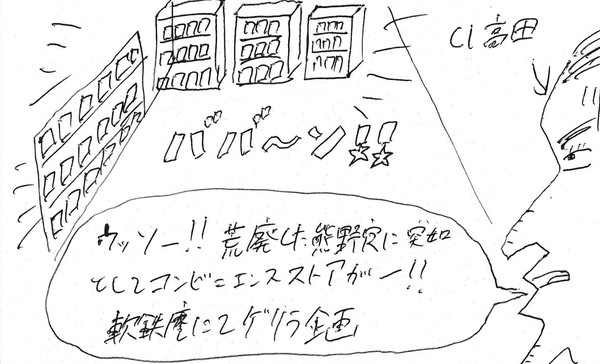 CI高田
ババ〜ン!!
ウッソー!! 荒廃した熊野定に突如
としてコンビニエンスストアがー!!
にてゲリラ企画